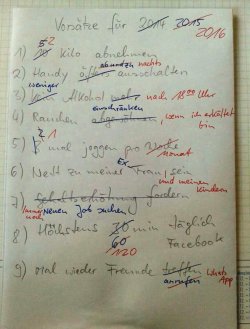 Vorsätze für 2014 2015 2016
1) 10 5 2 Kilo abnehmen
2) Handy öfters ausschalten abends nachts
3) Kein weniger Alkohol mehr nach 18 00 Uhr
4) Rauchen abgewöhnen einschränken, wenn ich erkältet bin
5) 2 1 mal joggen pro Woche Monat
6) Nett zu meiner Ex Frau sein und meinen Kindern
7) Gehaltserhöhung fordern
Immer noch Neuen Job suchen
8) Höchstens 30 60 120 min täglich Facebook
9) Mal wieder Freunde treffen anrufen WhatsApp